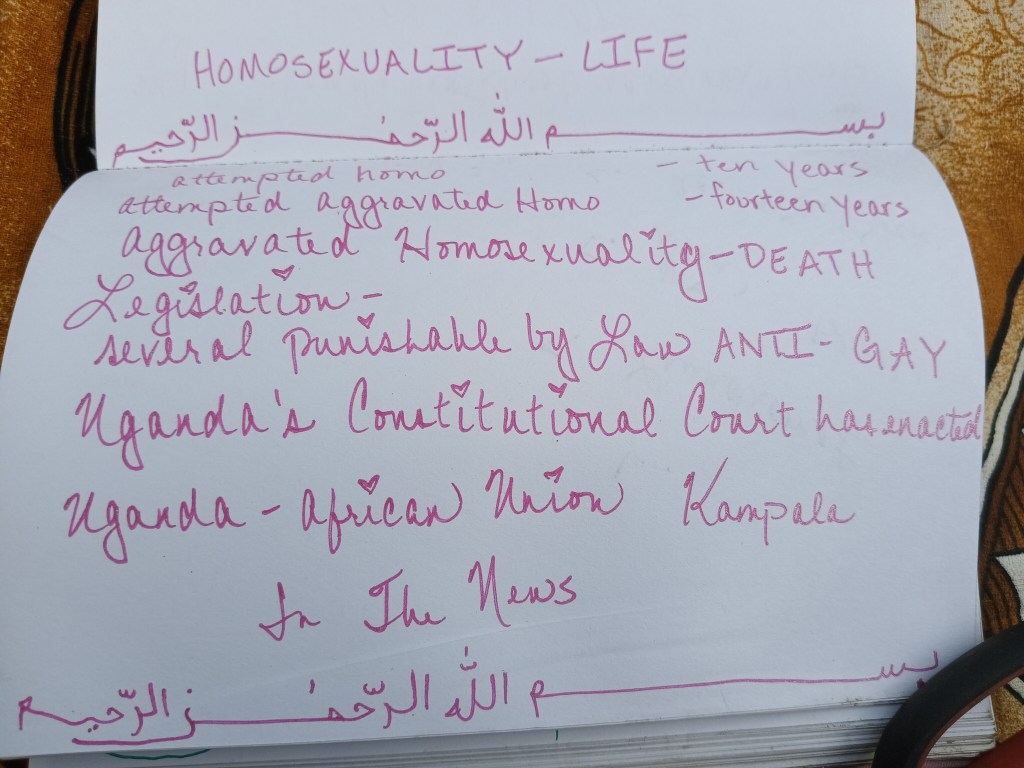 HOMOSEXUALITY - LIFE
بســـــم الله الرّحمٰـــن الرّحيم
attempted homo - ten years
attempted aggravated Homo - fourteen years
aggravated Homosexuality - DEATH
Legislation -
several punishable by Law ANTI-GAY
Uganda's Constitutional Court has enacted
Uganda - African Union Kampala
In The News
بســـــم الله الرّحمٰـــن الرّحيم